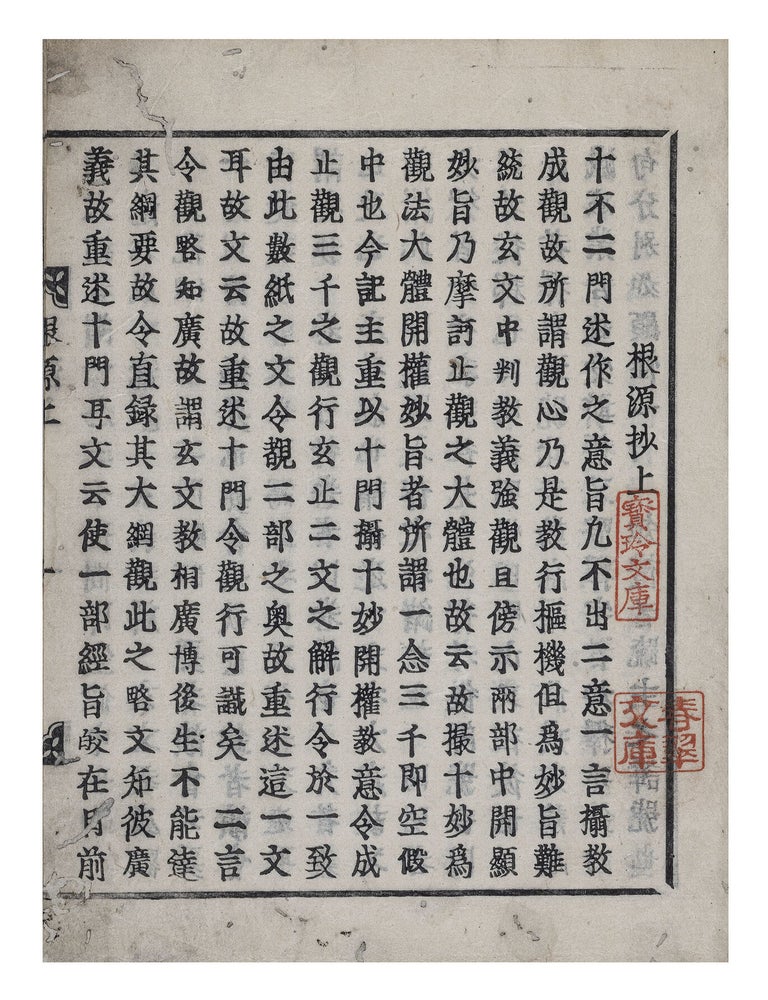 根源抄上
寶玲文庫
春翠
文庫
十不二門述作之意旨九不出二意一言攝教
成觀故所謂觀心乃是教行樞機但爲妙旨難
統故玄文中判教義強觀且傍示兩部中開顯
妙旨乃摩訶止觀之大體也故云故撮十妙爲
觀法大體開權妙旨者所謂一念三千即空假
中也今記主重以十門攝十妙開權教意令成
止觀三千之觀行玄止二文之解行令於一致
由此數紙之文令覩二部之奥故重述這一文
耳故文云故重述十門令觀行可識矣 二言
令觀略知廣故謂玄文教相廣博後生不能達
其綱要故令直録其大綱觀此之略文知彼廣
義故重述十門耳文云使一部經旨皎在目前
根源上
一